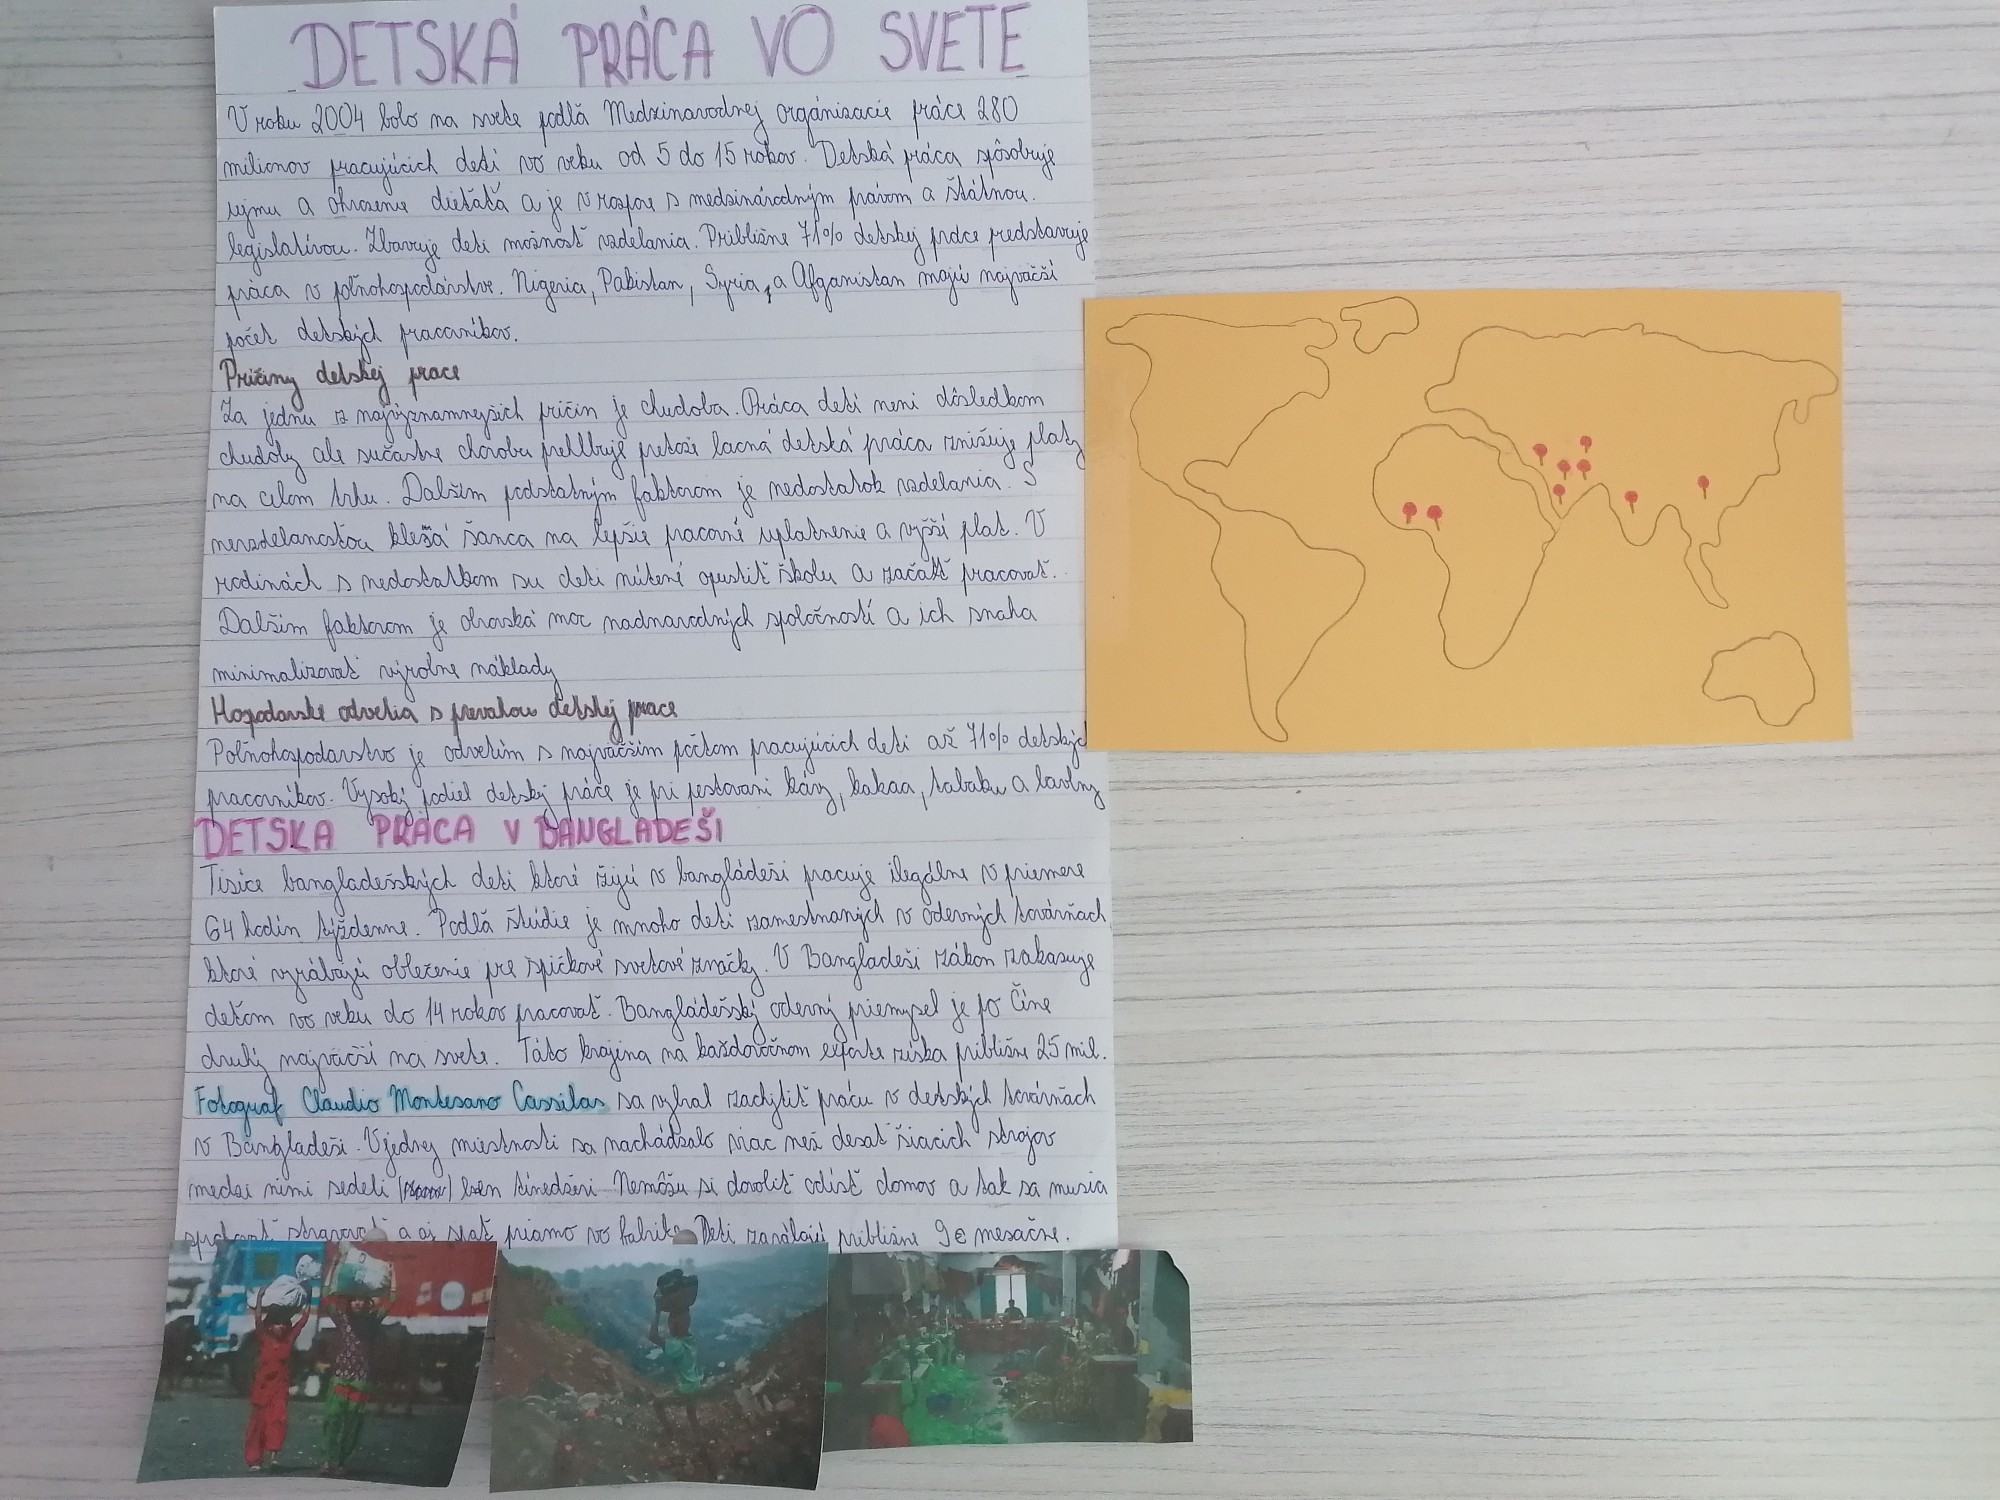 DETSKÁ PRÁCA VO SVETE
V roku 2004 bolo na svete podlă Medzinarodnej orgánizacie práce 280
milionov pracujúcich deti vo veku od 5 do 15 rokov. Detská práca spôsobuje
ujmu a ohrozenie dietătă a je v rozpore s medzinárodným právom a štátnou
legislatívou. Zbavuje deti možnosť vzdelania. Približne 71% detskej práce predstavuje
práca v poľnohospodárstve. Nigeria, Pakistan, Syria, a Afganistan majú najväčší
počet detských pracovníkov.
Pričiny detskej prace
Za jednu z najvýznamnejšich príčin je chudoba. Práca deti neni dôsledkom
chudoby ale sučastne chorobu prehlbuje pretože lacná detská práca znižuje platy
na celom trhu. Dalšim podstatným faktorom je nedostatok vzdelania. S
nevzdelanosťou klesá šanca na lepšie pracovné uplatnenie a vyšší plat. V
rodinách s nedostatkom su deti nútené opustiť školu a začăť pracovať.
Dalšim faktorom je obrovská moc nadnarodných spoločností a ich snaha
minimalizovať výrobne náklady
Hospodarske odvetia s prevahou detskej prace
Poľnohospodarstvo je odvetím s najväčším počtom pracujúcich deti až 71% detských
pracovníkov. Vysoký podiel detskej práce je pri pestovani kávy, kakaa, tabaku a bavlny
DETSKA PRÁCA V BANGLADEŠI
Tisice bangladešských deti ktoré žijú v bangládeši pracuje ilegálne v priemere
64 hodin týždenne. Podlă štúdie je mnoho deti zamestnaných v odevných továrňach
ktoré vyrábajú oblečenie pre špičkové svetové značky. V Bangladeši zákon zakazuje
deťom vo veku do 14 rokov pracovať. Bangládešský odevný priemysel je po Číne
druhý najväčší na svete. Táto krajina na každoročnom exporte získa približne 25 mil.
Fotograf Claudio Montesano Cassilas sa vybral zachytiť prácu v detských továrňach
v Bangladeši. V jednej miestnosti sa nachádzalo viac než desať šiacich strojov
medzi nimi sedeli len tínedžeri. Nemôžu si dovoliť odisť domov a tak sa musia
a aj spať priamo vo fabrike. Deti zarábajú približne 9€ mesačne.